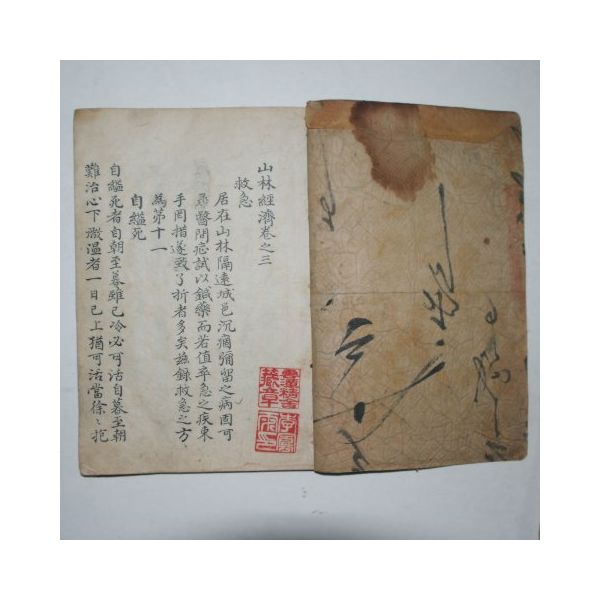 山林經濟卷之三
救急
居在山林隔遠城邑沉痼彌留之病固可
尋醫問症試以鍼藥而若值卒急之疾束
手罔措遂致夭折者多矣玆錄救急之方
為第十一
自縊死
自縊死者自朝至暮雖已冷必可活自暮至朝
難治心下微溫者一日已上猶可活當徐〻抱
藏章